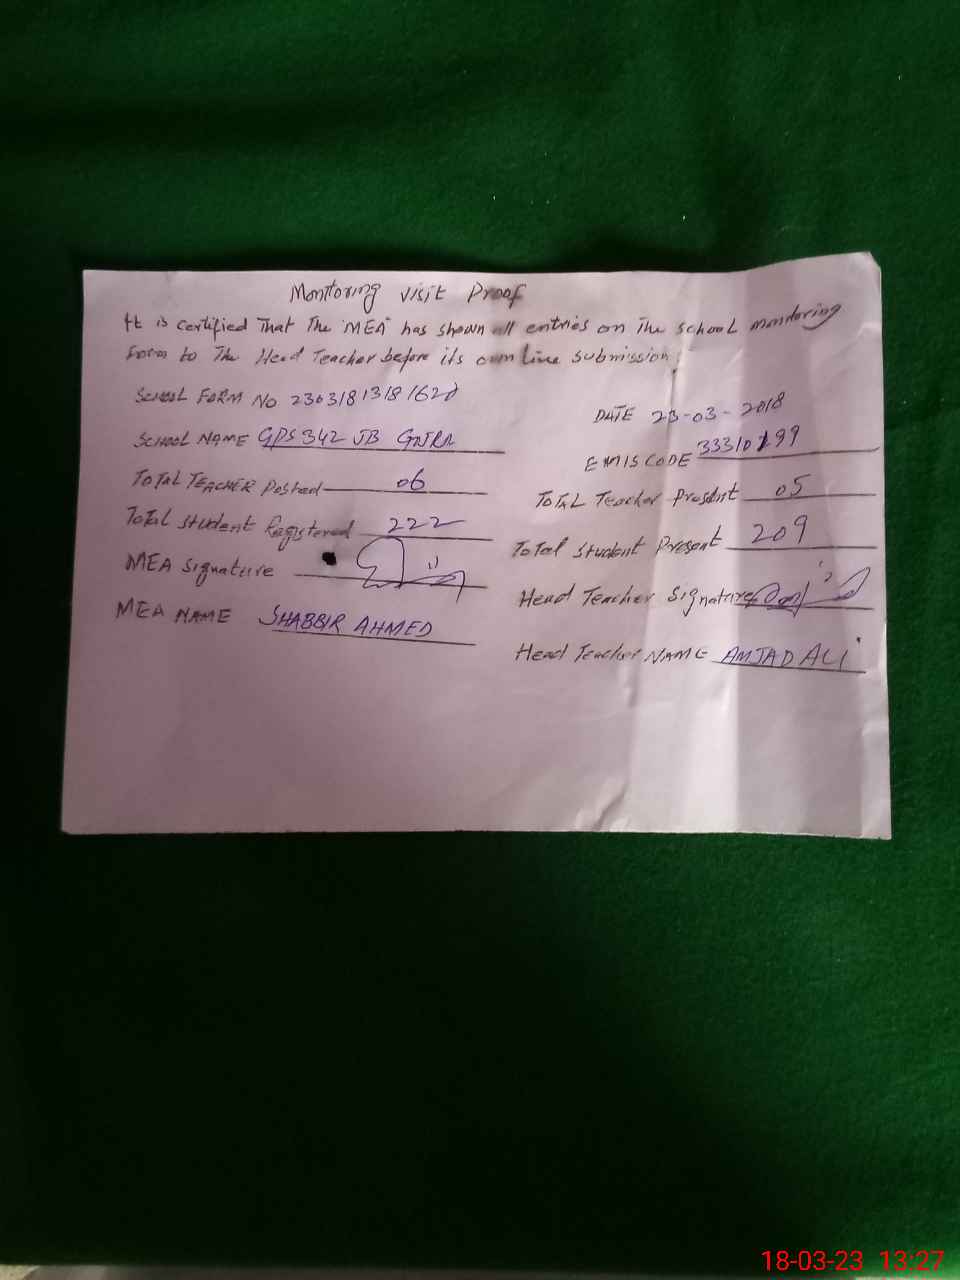 Monitoring visit Proof
It is certified That The "MEA" has shown all entries on The school monitoring
form to The Head Teacher before its online submission.
SCHOOL FORM NO
DATE 23-03-2018
SCHOOL NAME GPS 342 JB
EMIS CODE 33310199
TOTAL TEACHER Posted 06
TOTAL Teacher Present 05
Total student Registered 222
Total Student Present 209
MEA Signature
Head Teacher Signature
MEA NAME SHABBIR AHMED
Head Teacher NAME AMJAD ALI
18-03-23 13:27